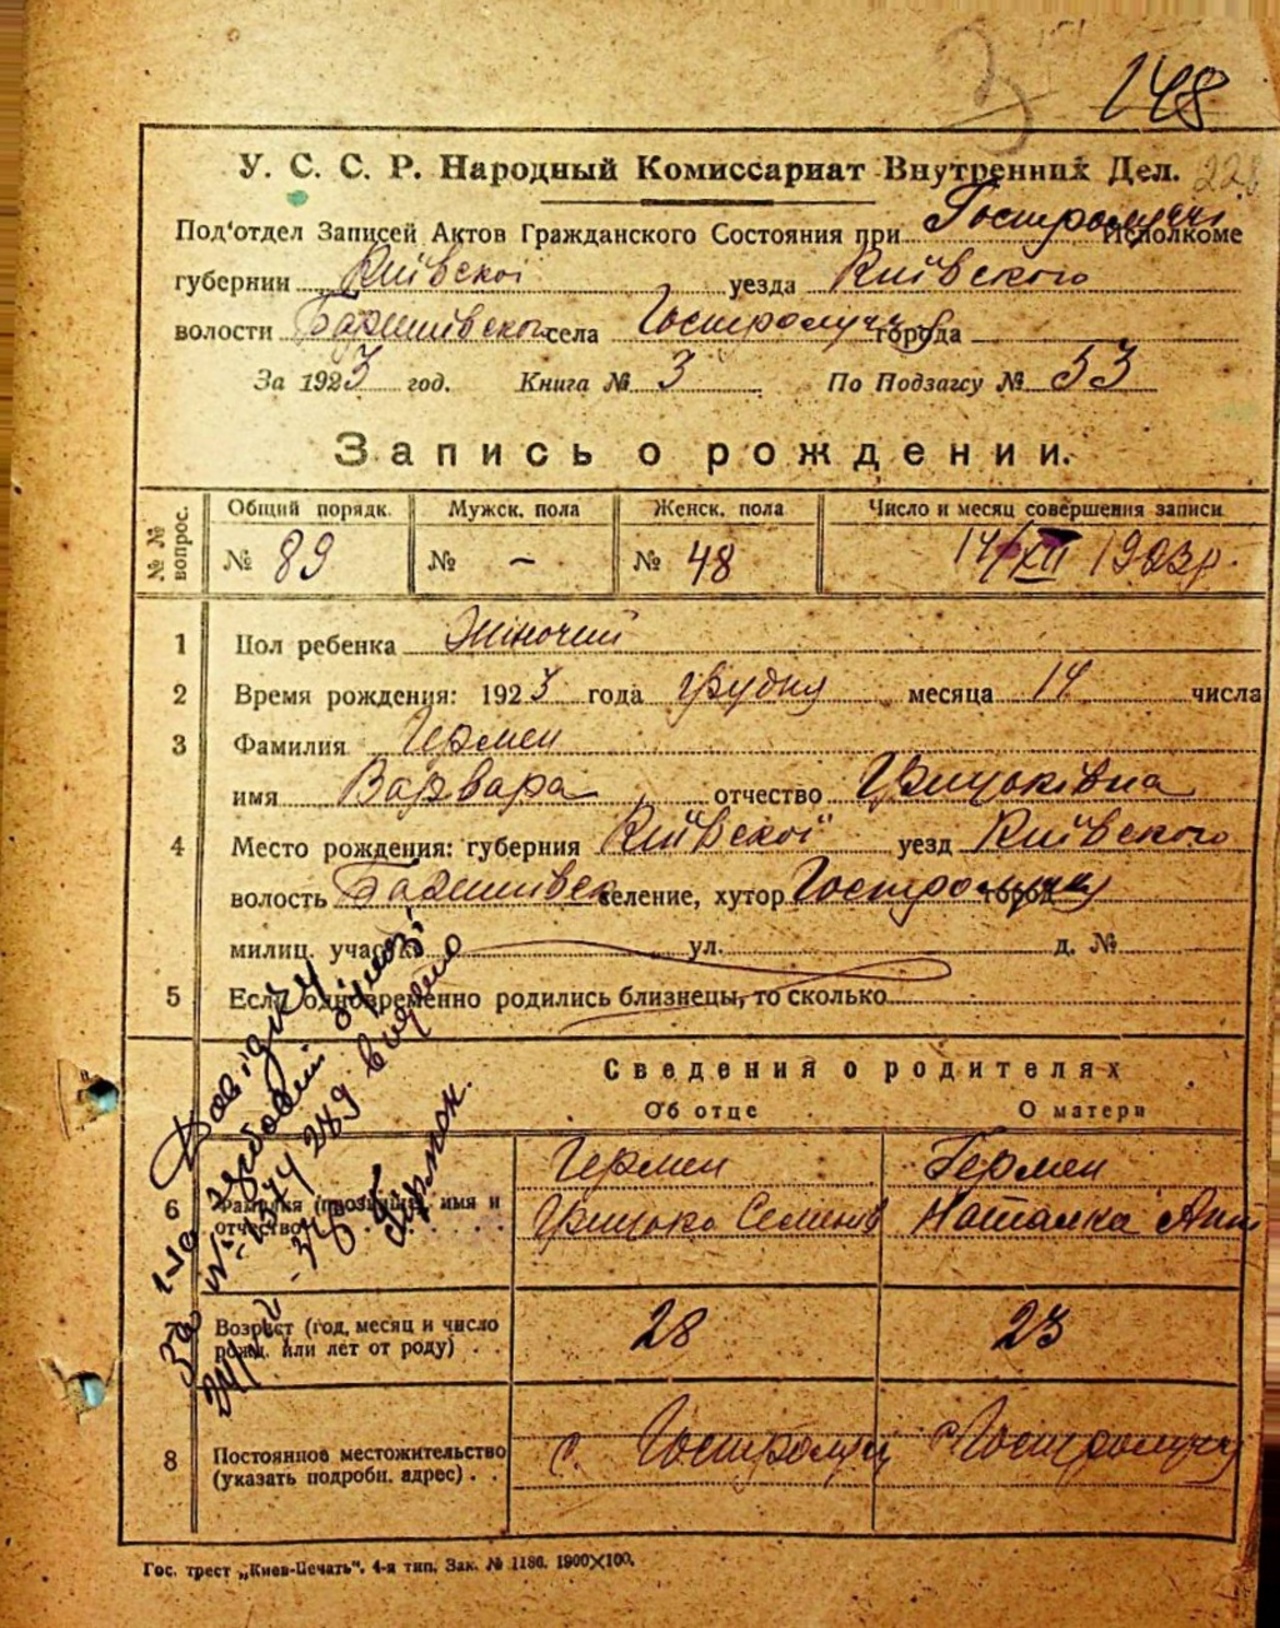 3
148
228
У. С. С. Р. Народный Комиссариат Внутренних Дел.
Под'отдел Записей Актов Гражданского Состояния при Гостролуччі Исполкоме
губернии Київскоі уезда Київского
волости Баришівскоі села Гостролуччя города
За 1923 год. Книга № 3 По Подзагсу № 53
Запись о рождении.
№ № вопрос. Общий порядк. Мужск. пола Женск. пола Число и месяц совершения записи
№ 89 № – № 48 14/XII 1923р.
1 Пол ребенка Жіночий
2 Время рождения: 1923 года грудня месяца 14 числа
3 Фамилия Гермен
имя Варвара отчество Грицьківна
4 Место рождения: губерния Київскоі уезд Київского
волость Баришівск селение, хутор Гостролуччя город
милиц. участк ул. д. №
5 Если одновременно родились близнецы, то сколько
Сведения о родителях
Об отце О матери
6 Фамилия (прозвище), имя и отчество Гермен Гермен
Грицько Семенів Наталка Ант
Возраст (год, месяц и число рожд. или лет от роду) . . 28 23
8 Постоянное местожительство (указать подробн. адрес) . . с. Гостролуччі с. Гостролуччя
Довідку
видано
Гос. трест „Киев-Печать". 4-я тип. Зак. № 1186. 1900×100.